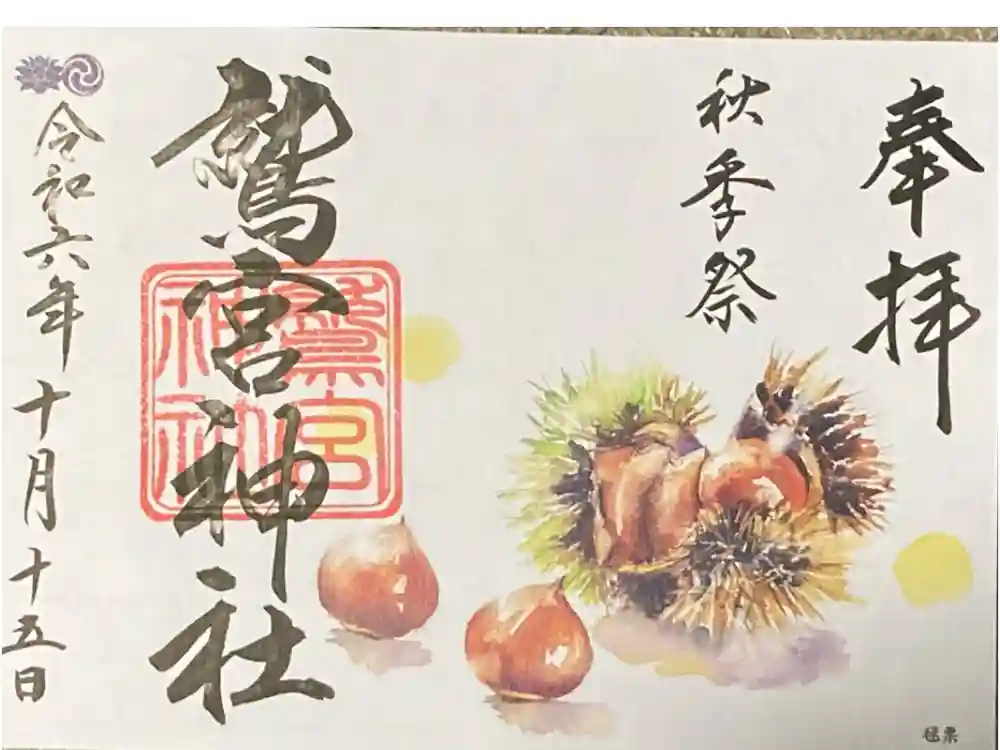 奉拝
秋季祭
鷲宮神社
鷲宮
神社
令和六年十月十五日
毬栗